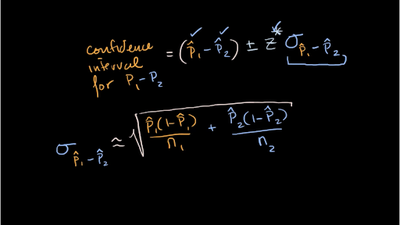 confidence
interval = (p̂₁-p̂₂) ± z* σ p̂₁-p̂₂
for P₁-P₂
σ p̂₁-p̂₂ ≈ √ p̂₁(1-p̂₁)/n₁ + p̂₂(1-p̂₂)/n₂